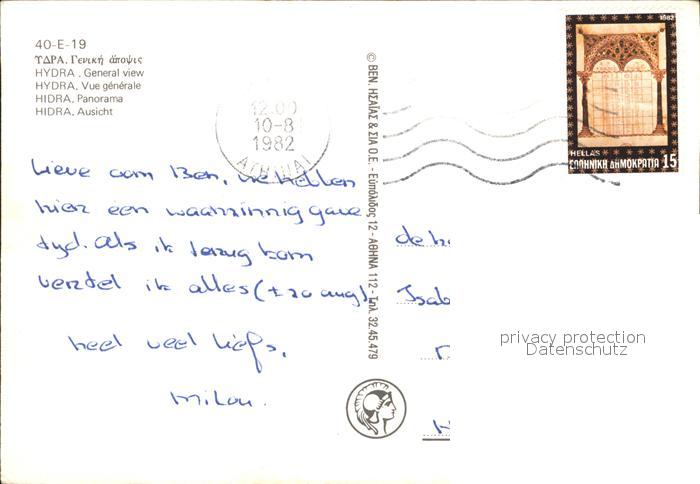 40-E-19
ΥΔΡΑ. Γενική άποψις
HYDRA. General view
HYDRA. Vue générale
HIDRA. Panorama
HIDRA. Ausicht
12.00
10-8
1982
ΑΘΗΝΑΙ
1982
HELLAS
ΕΛΛΗΝΙΚΗ ΔΗΜΟΚΡΑΤΙΑ 15
© ΒΕΝ. ΗΣΑΪΑΣ & ΣΙΑ Ο.Ε. - Εὐπόλιδος 12 - ΑΘΗΝΑ 112 - Τηλ. 32.45.479
Lieve oom Ben, we hebben
hier een waanzinnig gave
tyd. Als ik terug kom
vertel ik alles (± 20 aug).
heel veel liefs,
Milou.
de h
Isab
privacy protection
Datenschutz